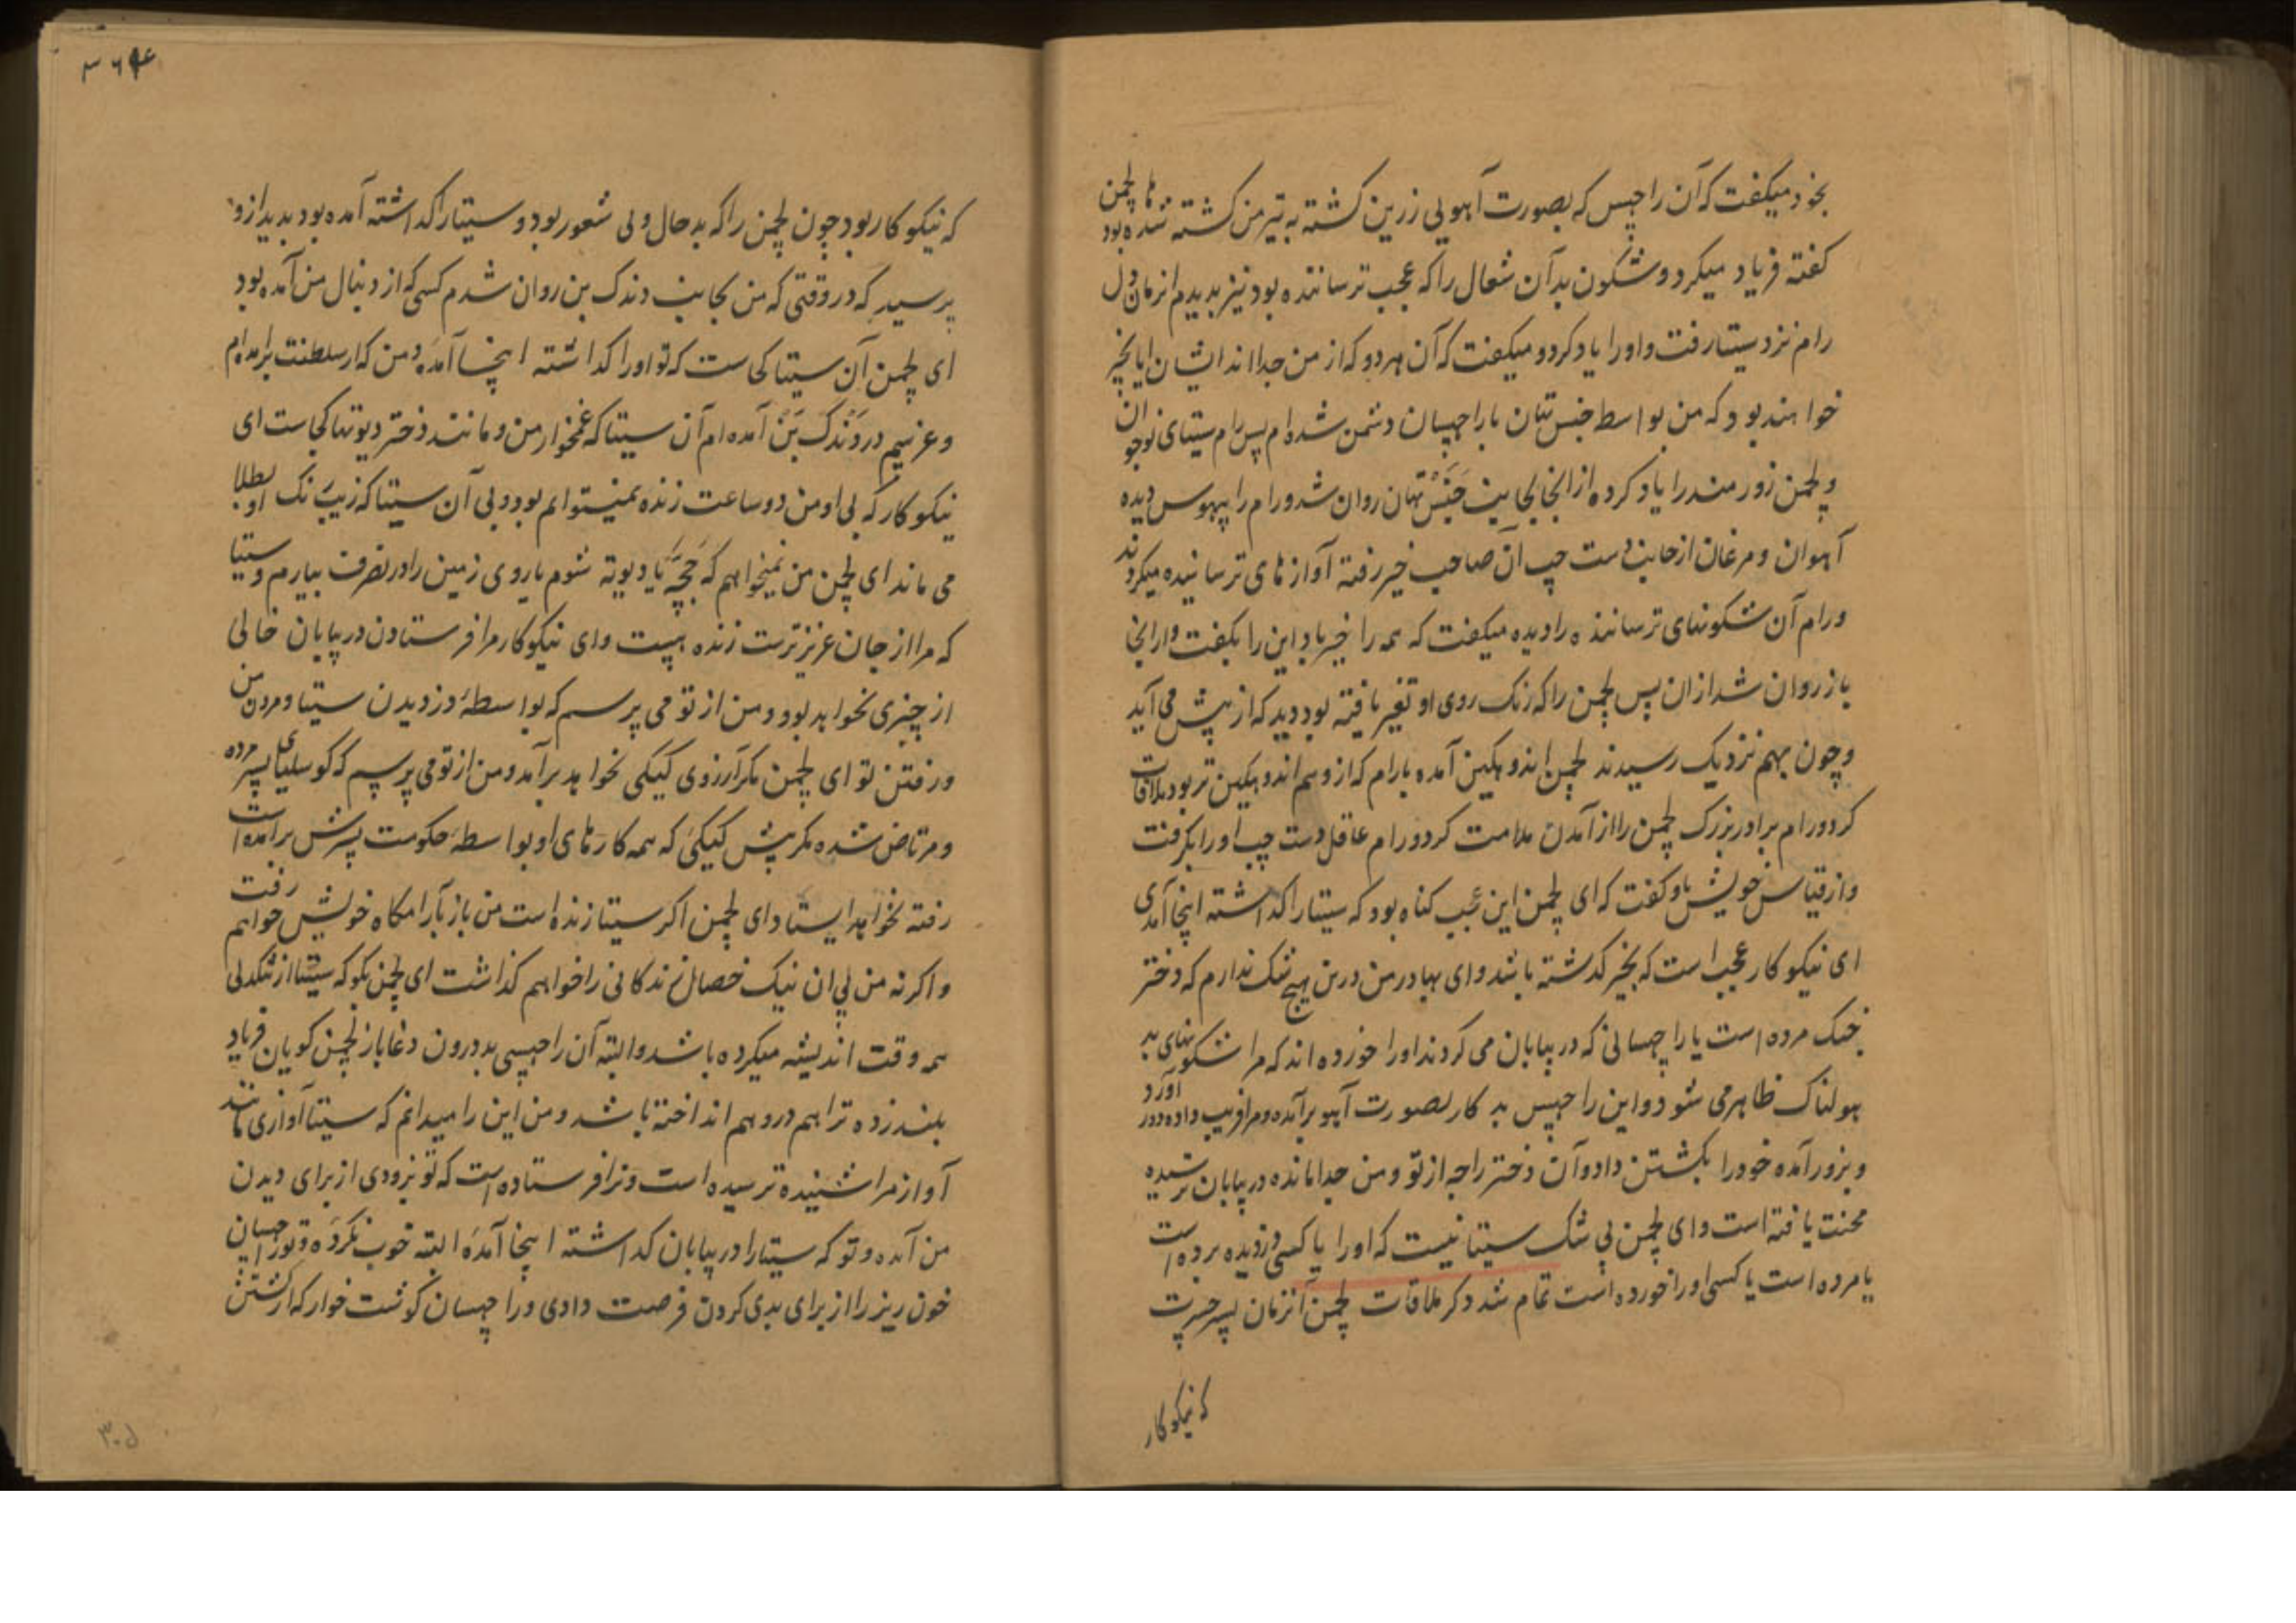 بخود میکفت که آن راچهس که بصورت آهوئی زرین کشته به تیر من کشته شده بود ها لچمن
کفته فریاد میکرد و شکون بد آن شغال را که عجب ترساننده بود نیز بدیدم انزمان دل
رام نزد سیتا رفت و اورا یاد کرد و میکفت که آن هر دو که از من جدا اند ایشان ایا بخیر
خواهند بود که من بواسط جنس تهان با راچهسان دشمن شده ام پس رام سیتای نوجوان
و لچمن زورمند را یاد کرده از انجا بجانب جنس تهان روان شد و رام را بیهوس دیده
آهوان و مرغان از جانب دست چپ آن صاحب خیر رفته آواز های ترسانیده میکردند
و رام آن شکونهای ترساننده را دیده میکفت که همه را خیر باد این را بکفت و از انجا
باز روان شد ازان پس لچمن را که رنک روی او تغیر یافته بود دید که از پیش می آید
و چون بهم نزدیک رسیدند لچمن اندوهکین آمده بارام که ازو هم اندوهکین تر بود ملاقات
کرد و رام برادر بزرک لچمن را از آمدن ملامت کرد و رام عاقل دست چپ اورا بکرفت
و از قیاس خویش باو کفت که ای لچمن این عجب کناه بود که سیتا را کذاشته اینجا آمدی
ای نیکو کار عجب است که بخیر کذشته باشد و ای بهادر من درین هیچ شک ندارم که دختر
جنک مرده است یا راچهسانی که در بیابان می کردند اورا خورده اند که مرا شکونهای بد
هولناک ظاهر می شود و این راچهس بد کار بصورت آهو برآمده و مرا فریب داده دور آورد
و بزور آمده خود را بکشتن داد و آن دختر راجه از تو و من جدا مانده در بیابان ترسیده
محنت یافته است و ای لچمن بی شک سیتا نیست که اورا یا کسی دزدیده برده است
یا مرده است یا کسی اورا خورده است تمام شد ذکر ملاقات لچمن انزمان پسر جسرت
که نیکو کار
که نیکو کار بود چون لچمن را که بد حال و بی شعور بود و سیتا را کذاشته آمده بود بدید ازو
پرسید که در وقتی که من بجانب دندک بن روان شدم کسی که از دنبال من آمده بود
ای لچمن آن سیتا کجاست که تو اورا کذاشته اینجا آمده و من که از سلطنت برامده ام
و عزیم در دندک بن آمده ام آن سیتا که غمخوار من و مانند دختر دیوتها کجاست ای
نیکو کار که بی او من دو ساعت زنده نمیتوانم بود و بی آن سیتا که زیب نک او بطلا
می ماند ای لچمن من نمیخواهم که جچهه یا دیوته شوم یا روی زمین را در تصرف بیارم و سیتا
که مرا از جان عزیز ترست زنده هست و ای نیکو کار مرا فرستادن در بیابان خالی
از چیزی نخواهد بود و من از تو می پرسم که بواسطه دزدیدن سیتا و مردن من
و رفتن تو ای لچمن مکر آرزوی کیکی نخواهد برآمد و من از تو می پرسم که کوسلیای پسر مرده
و مرتاض شده مکر پیش کیکی که همه کار های او بواسطه حکومت پسرش برامده است
رفته نخواهد ایستاد ای لچمن اکر سیتا زنده است من باز بآرامکاه خویش خواهم رفت
و اکرنه من بی ان نیک خصال زندکانی را خواهم کذاشت ای لچمن بکو که سیتا از تنکدلی
همه وقت اندیشه میکرده باشد و البته آن راچهسی بد درون دغاباز لچمن کویان فریاد
بلند زده ترا هم در وهم انداخته باشد و من این را میدانم که سیتا آوازی مانند
آواز مرا شنیده ترسیده است و ترا فرستاده است که تو بزودی از برای دیدن
من آمده و تو که سیتا را در بیابان کذاشته اینجا آمده البته خوب نکرده و تو راچهسان
خون ریز را از برای بدی کردن فرصت دادی و راچهسان کوشت خوار که از کشتن